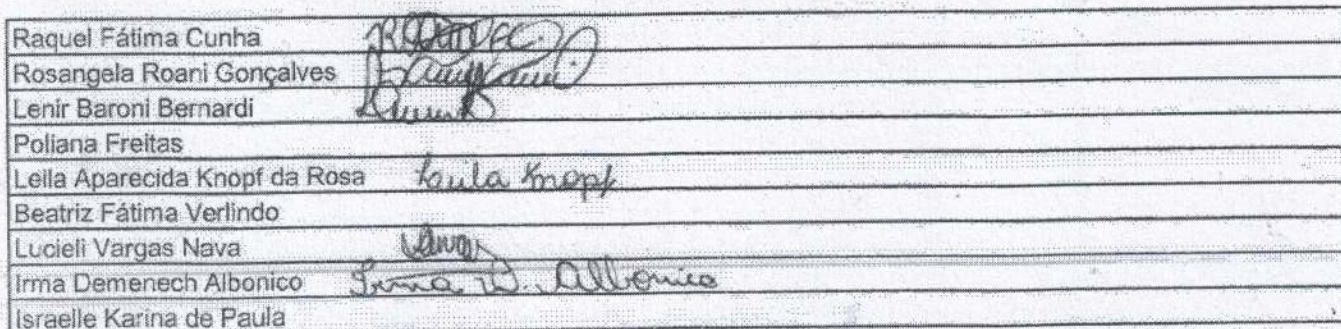 Raquel Fátima Cunha
Rosangela Roani Gonçalves
Lenir Baroni Bernardi
Poliana Freitas
Leila Aparecida Knopf da Rosa Leila Knopf
Beatriz Fátima Verlindo
Lucieli Vargas Nava
Irma Demenech Albonico Irma D. Albonico
Israelle Karina de Paula